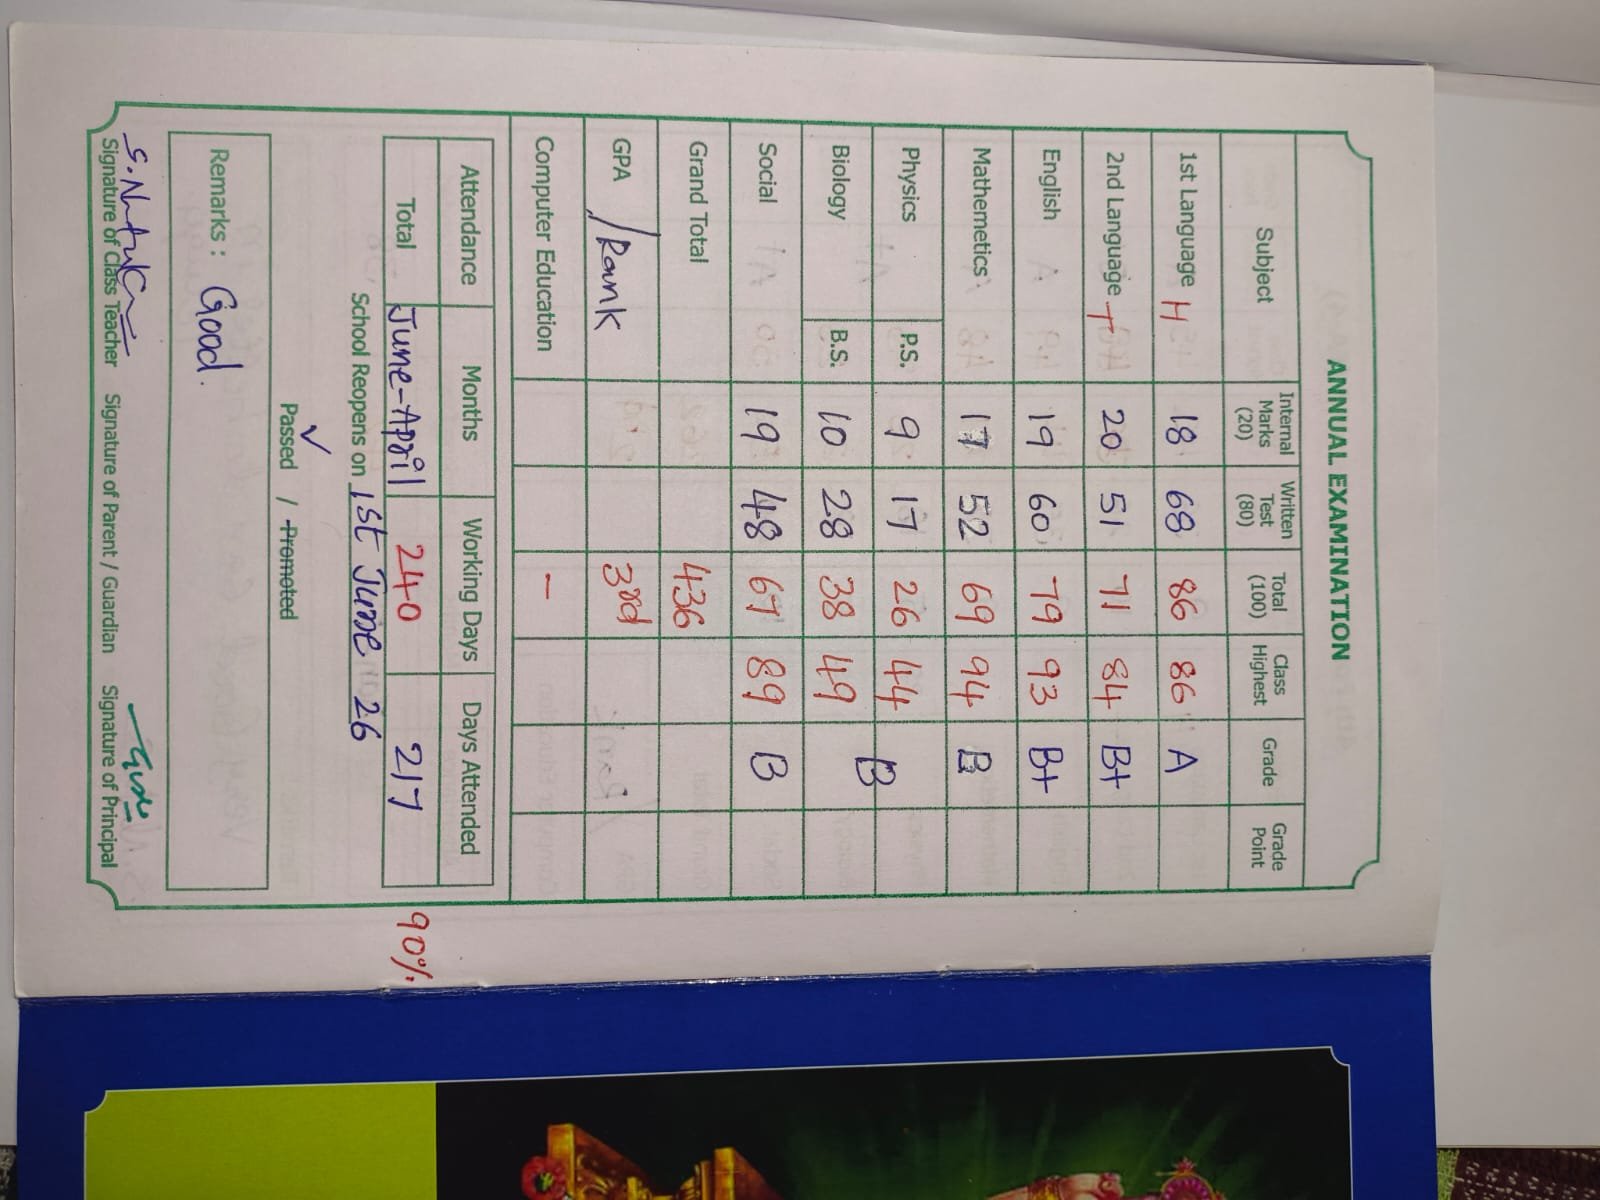 ANNUAL EXAMINATION
Subject Internal Marks (20) Written Test (80) Total (100) Class Highest Grade Grade Point
1st Language H 18 68 86 86 A
2nd Language T 20 51 71 84 B+
English 19 60 79 93 B+
Mathemetics 17 52 69 94 B
Physics P.S. 9 17 26 44 B
Biology B.S. 10 28 38 49
Social 19 48 67 89 B
Grand Total 436
GPA /Rank 3rd
Computer Education –
Attendance Months Working Days Days Attended
Total June-April 240 217 90%
School Reopens on 1st June 26
Passed / Promoted
Remarks : Good.
Signature of Class Teacher Signature of Parent / Guardian Signature of Principal